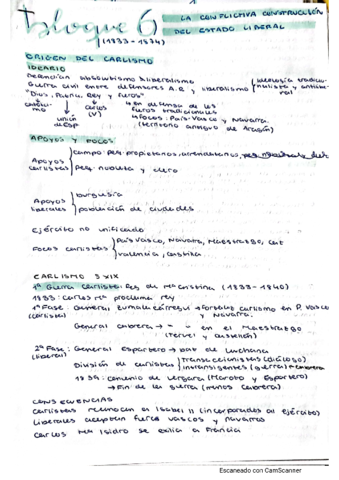 Bloque 6
(1833 - 1874)
LA CONFLICTIVA CONSTRUCCIÓN
DEL ESTADO LIBERAL
ORIGEN DEL CARLISMO
IDEARIO
absolutismo liberalismo
Guerra civil entre defensores A.R y liberalismo
ideología tradicio-
nalista y antiliberal
"Dios, Patria, Rey y fueros"
carlos
(V)
unión
de Esp
en defensa de los
fueros tradicionales
focos: País Vasco y Navarra.
(territorio antiguo de Aragón)
APOYOS Y FOCOS
Apoyos
carlistas
campo: peq. propietarios, arrendatarios,
peq nobleza y clero
Apoyos
liberales
burguesía
población de ciudades
Ejército no unificado
Focos carlistas
País Vasco, Navarra, Maestrazgo, Cat
Valencia, Castilla
CARLISMO S XIX
1ª Guerra Carlista: Reg de Mª Cristina (1833 - 1840)
1833: Carlos Mª proclama rey
1ª Fase: General Zumalacárregui → fortalece carlismo en P. Vasco
(carlista)
y Navarra.
General Cabrera → " " en el Maestrazgo
(Teruel y Castellón)
2ª Fase: General Espartero → bat de Luchana
(liberal)
División de carlistas
Transaccionistas (diálogo)
intransigentes (guerra) → Cabrera
1839: convenio de Vergara (Maroto y Espartero)
→ Fin de la guerra (menos Cabrera)
CONSECUENCIAS
Carlistas reconocen a Isabel II (incorporados al ejército)
Liberales aceptan fueros vascos y navarros
Carlos Mª Isidro se exilia a Francia
Escaneado con CamScanner